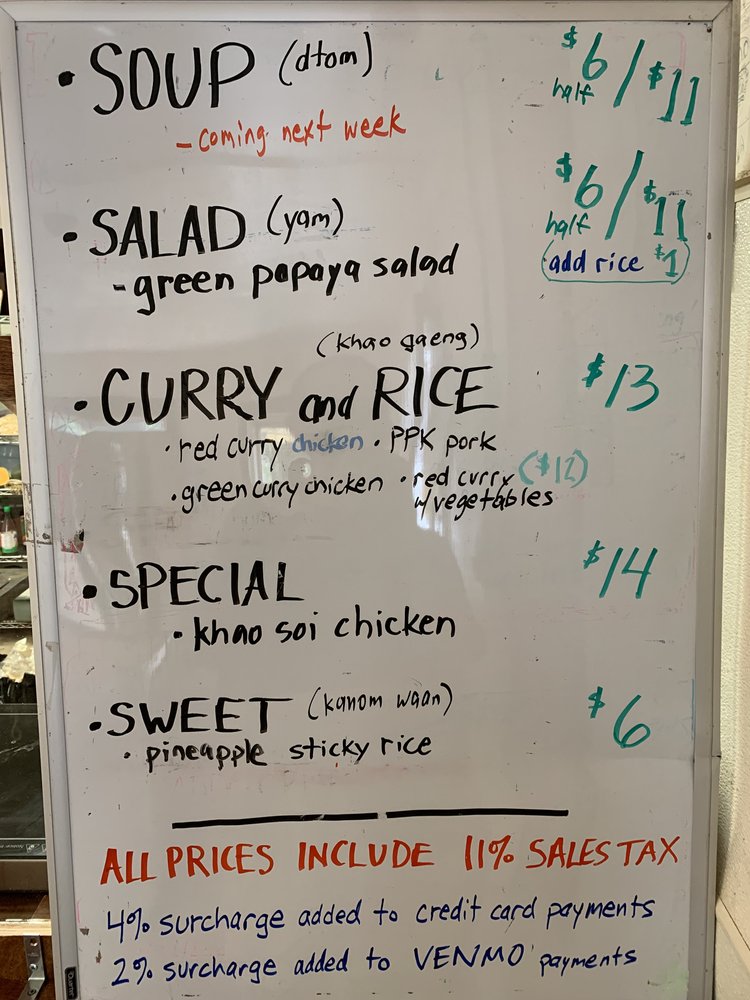 • SOUP (dtom) $6 half / $11
- coming next week
• SALAD (yam) $6 half / $11
- green papaya salad (add rice $1)
(khao gaeng)
• CURRY and RICE $13
• red curry chicken • PPK pork
• green curry chicken • red curry ($12)
w/vegetables
• SPECIAL $14
• khao soi chicken
• SWEET (kanom waan) $6
• pineapple sticky rice
ALL PRICES INCLUDE 11% SALES TAX
4% surcharge added to credit card payments
2% surcharge added to VENMO payments